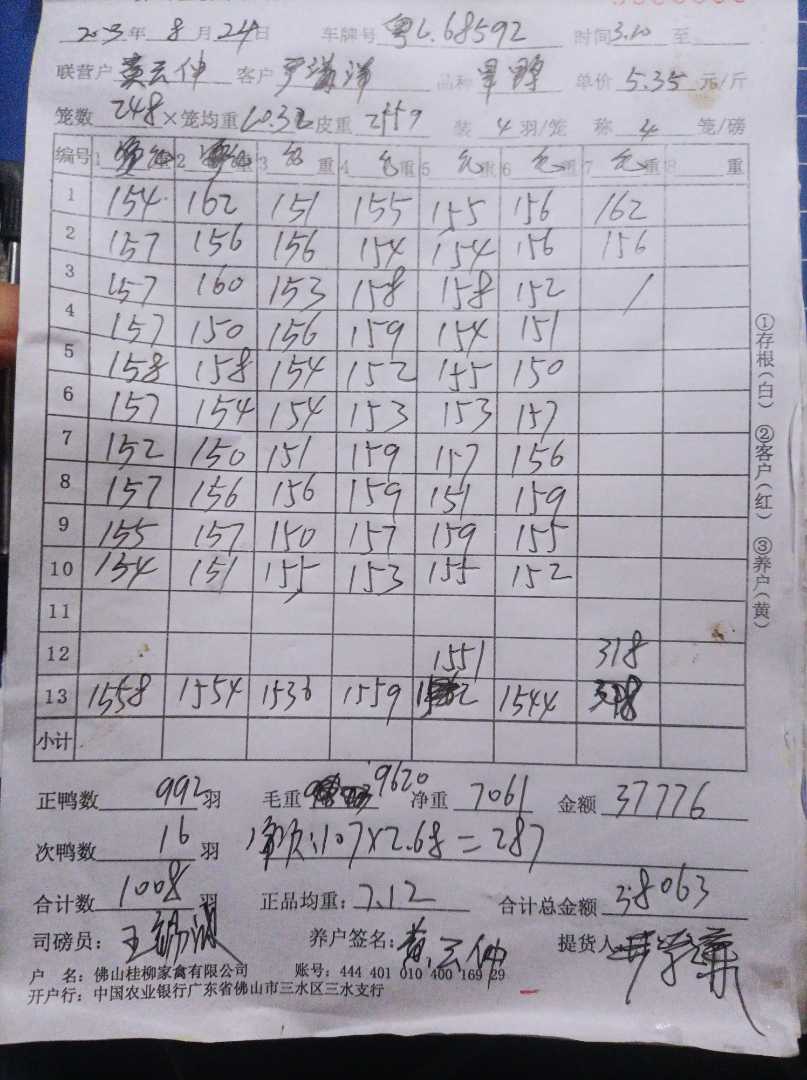 2023年 8月24日 车牌号 粤L.68592 时间3.10 至
联营户 黄云仲 客户 品种 单价 5.35 元/斤
笼数 248 × 笼均重 10.32 皮重 2559 装 4 羽/笼 称 4 笼/磅
编号 1 重 2 重 3 重 4 毛重 5 毛重 6 毛重 7 毛重 8 重
1 154 162 151 155 155 156 162
2 157 156 156 154 154 156 156
3 157 160 153 158 158 152 /
4 157 150 156 159 154 151
5 158 158 154 152 155 150
6 157 154 154 153 153 157
7 152 150 151 159 157 156
8 157 156 156 159 151 159
9 155 157 150 157 159 155
10 154 151 155 153 155 152
11
12 1551 318
13 1558 1554 1536 1559 1544
小计
正鸭数 992 羽 毛重 9620 净重 7061 金额 37776
次鸭数 16 羽 107×2.68=287
合计数 1008 羽 正品均重: 7.12 合计总金额 38063
司磅员: 王 养户签名: 黄云仲 提货人
户 名: 佛山桂柳家禽有限公司 账号: 444 401 010 400 169 29
开户行: 中国农业银行广东省佛山市三水区三水支行
①存根(白) ②客户(红) ③养户(黄)